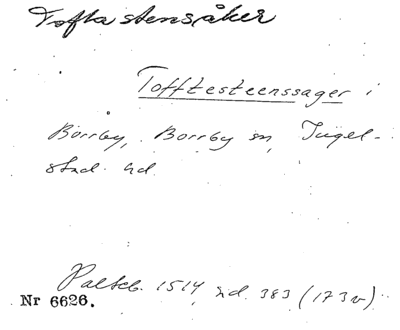 Toftastensåker
Tofftesteenssager i
Borrby, Borrby sn, Ingel-
stad hd.
Paltsb. 1514, sid. 383 (173v).
Nr 6626.